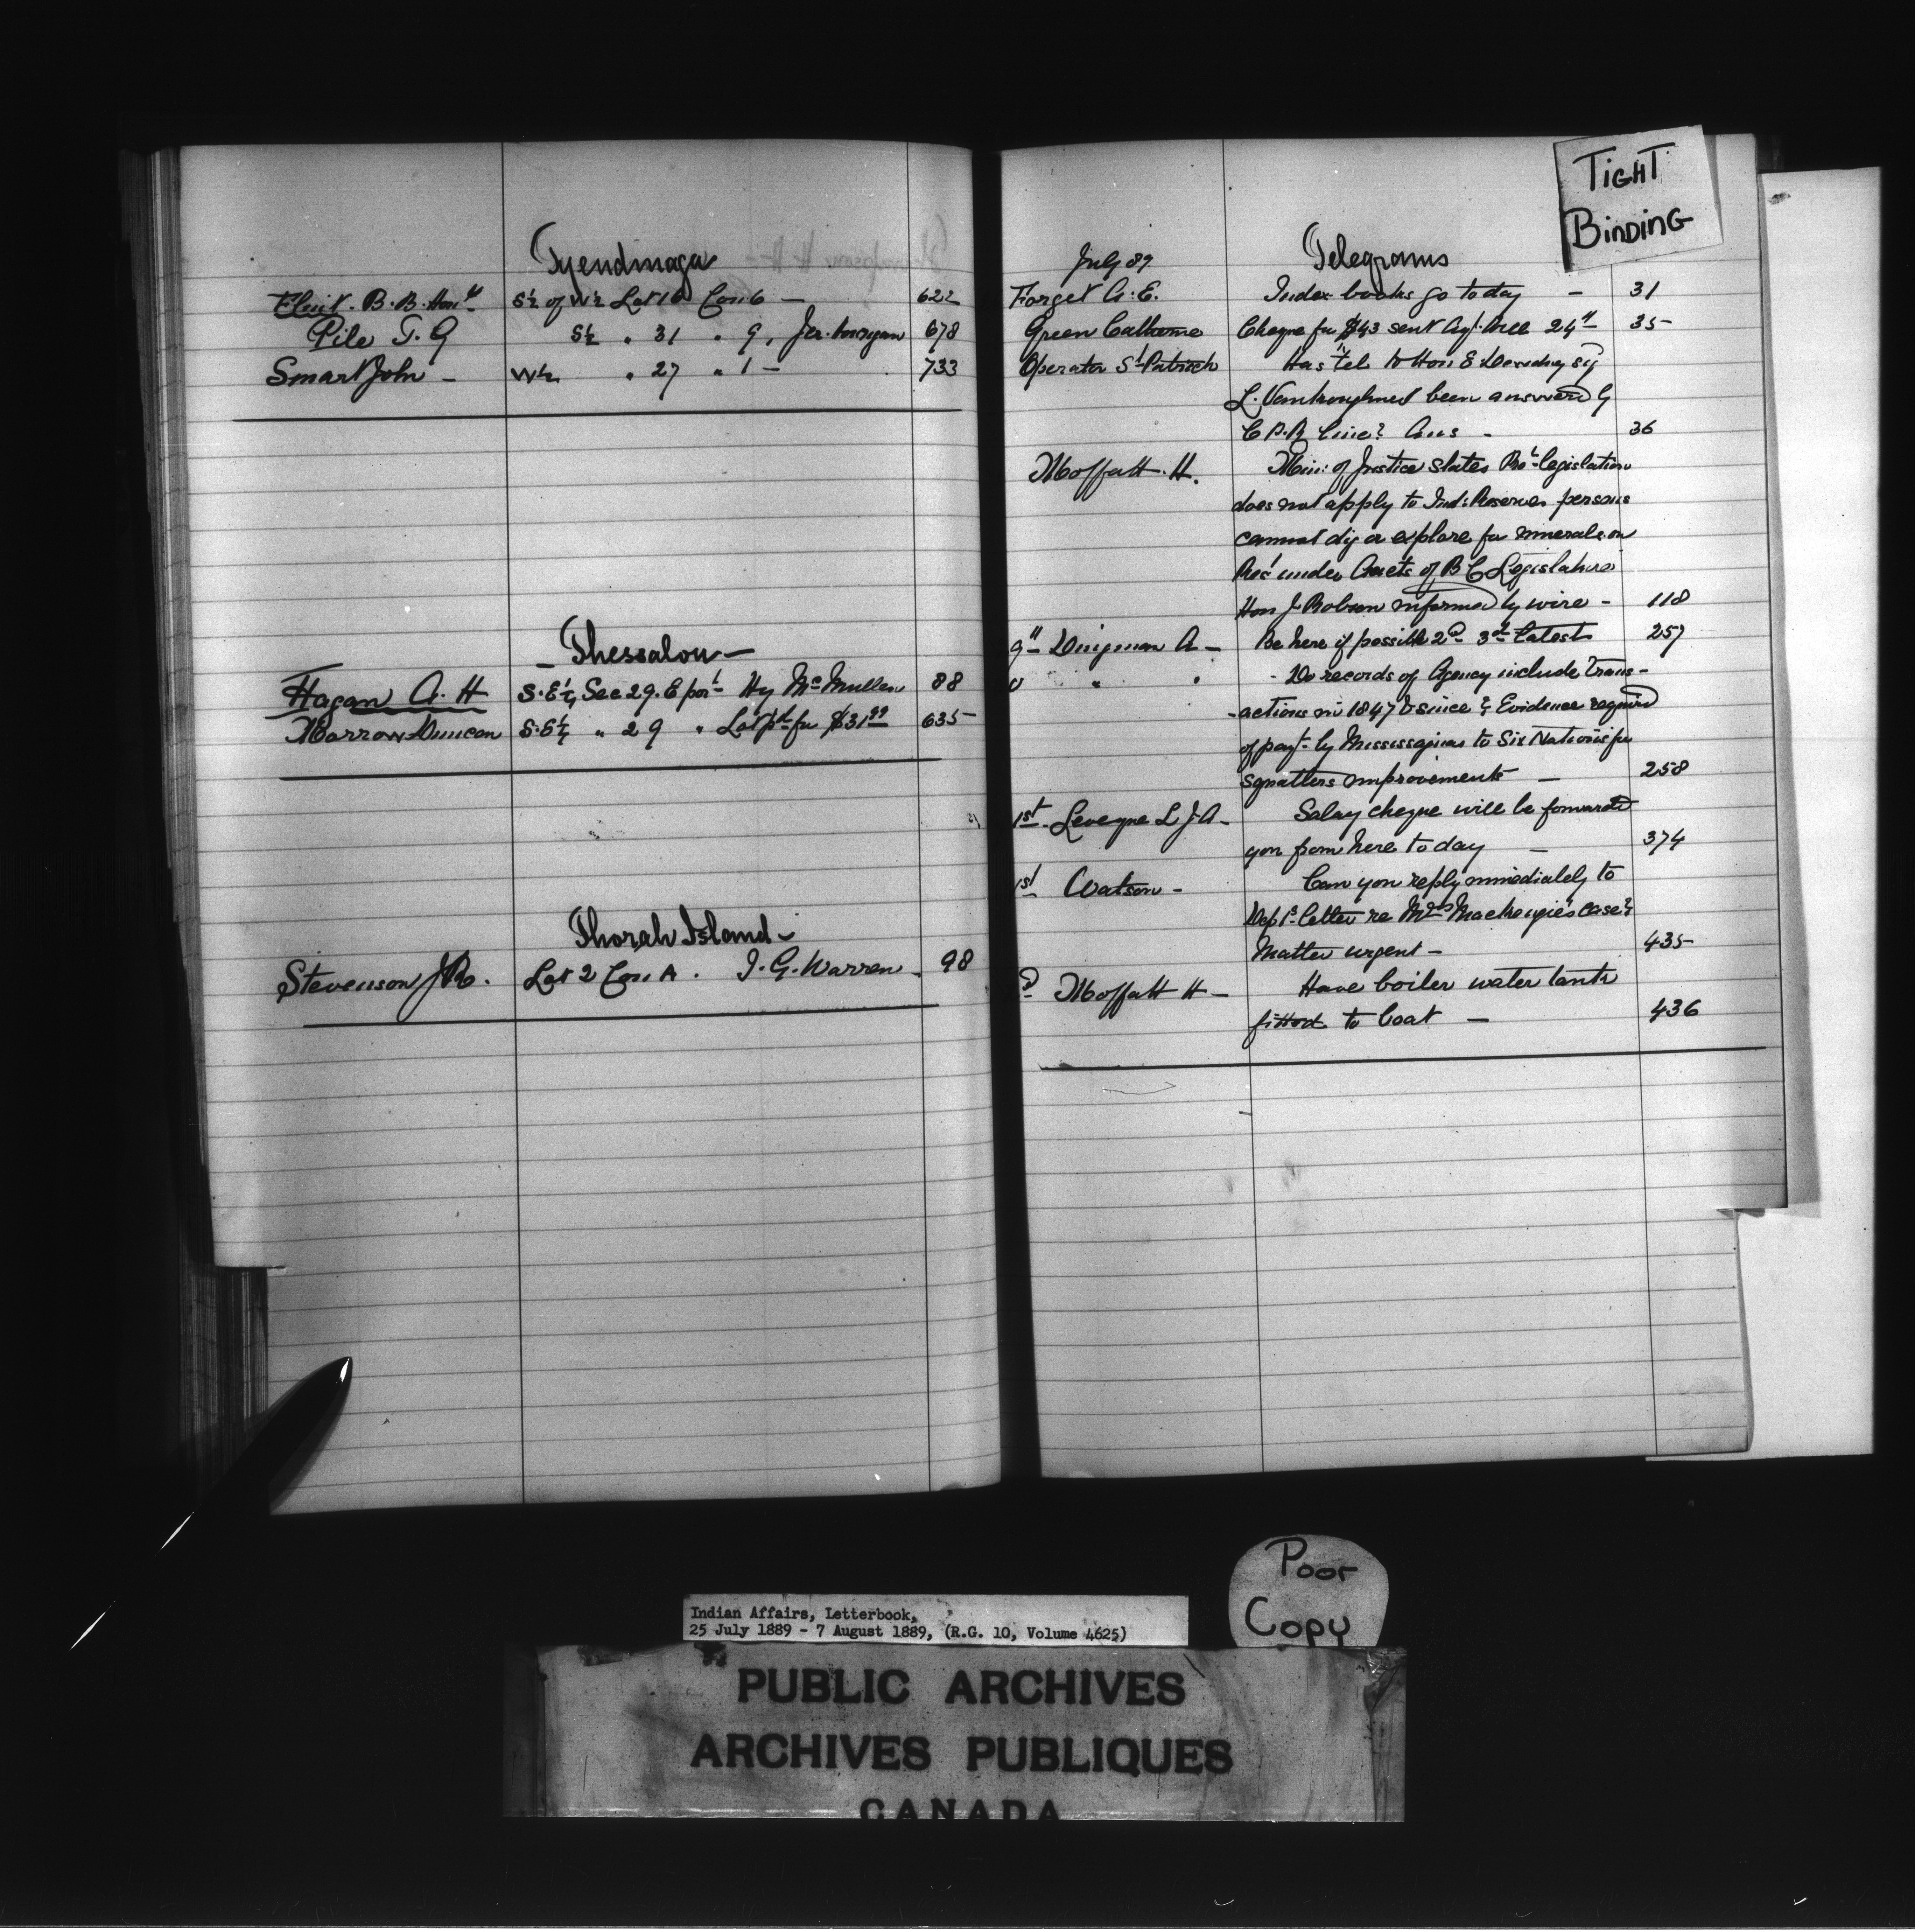 Tyendinaga
Flint. B. B. Hon. S½ of W½ Lot 16 Con 6 — 622
Pile T. G S½ " 31 " 9, 678
Smart John — W½ " 27 " 1 — 733
— Thessalon —
Hagan A. H S. E¼ Sec 29. E por^t Hy McMullen 88
Marrow Duncan S. E¼ " 29 " Lot p^d for $31 635
Thorah Island —
Stevenson J R. Lot 2 Con A. J. G. Warren 98
TIGHT
BINDING
July 89 Telegrams
Forget A. E. Index books go today — 31
Green Catherine Cheque for $43 sent Agt. 24th 35
Operator St Patrick Has tel. to Hon E Dewdney sig
L. Vankoughnet been answered by
C P. R line? Ans — 36
Moffatt. H. Min: of Justice states Pro^l legislation
does not apply to Ind: Reserves persons
cannot dig or explore for minerals on
Res^s under Acts of B C Legislature
Hon J Robson informed by wire — 118
9th Dingman A — Be here if possible 2d 3rd latest 257
" " - Do records of Agency include trans-
-actions in 1847 & since? Evidence required
of payt. by Mississaguas to Six Nations for
squatters improvements — 258
1st. Leveque L J. A — Salary cheque will be forwarded
you from here to day — 374
1st Watson — Can you reply immediately to
Dept^s letter re Mrs Mackenzie's case?
Matter urgent — 435
Moffatt H — Have boiler water tank
fitted to boat — 436
Poor
Copy
Indian Affairs, Letterbook,
25 July 1889 - 7 August 1889, (R.G. 10, Volume 4625)
PUBLIC ARCHIVES
ARCHIVES PUBLIQUES
CANADA